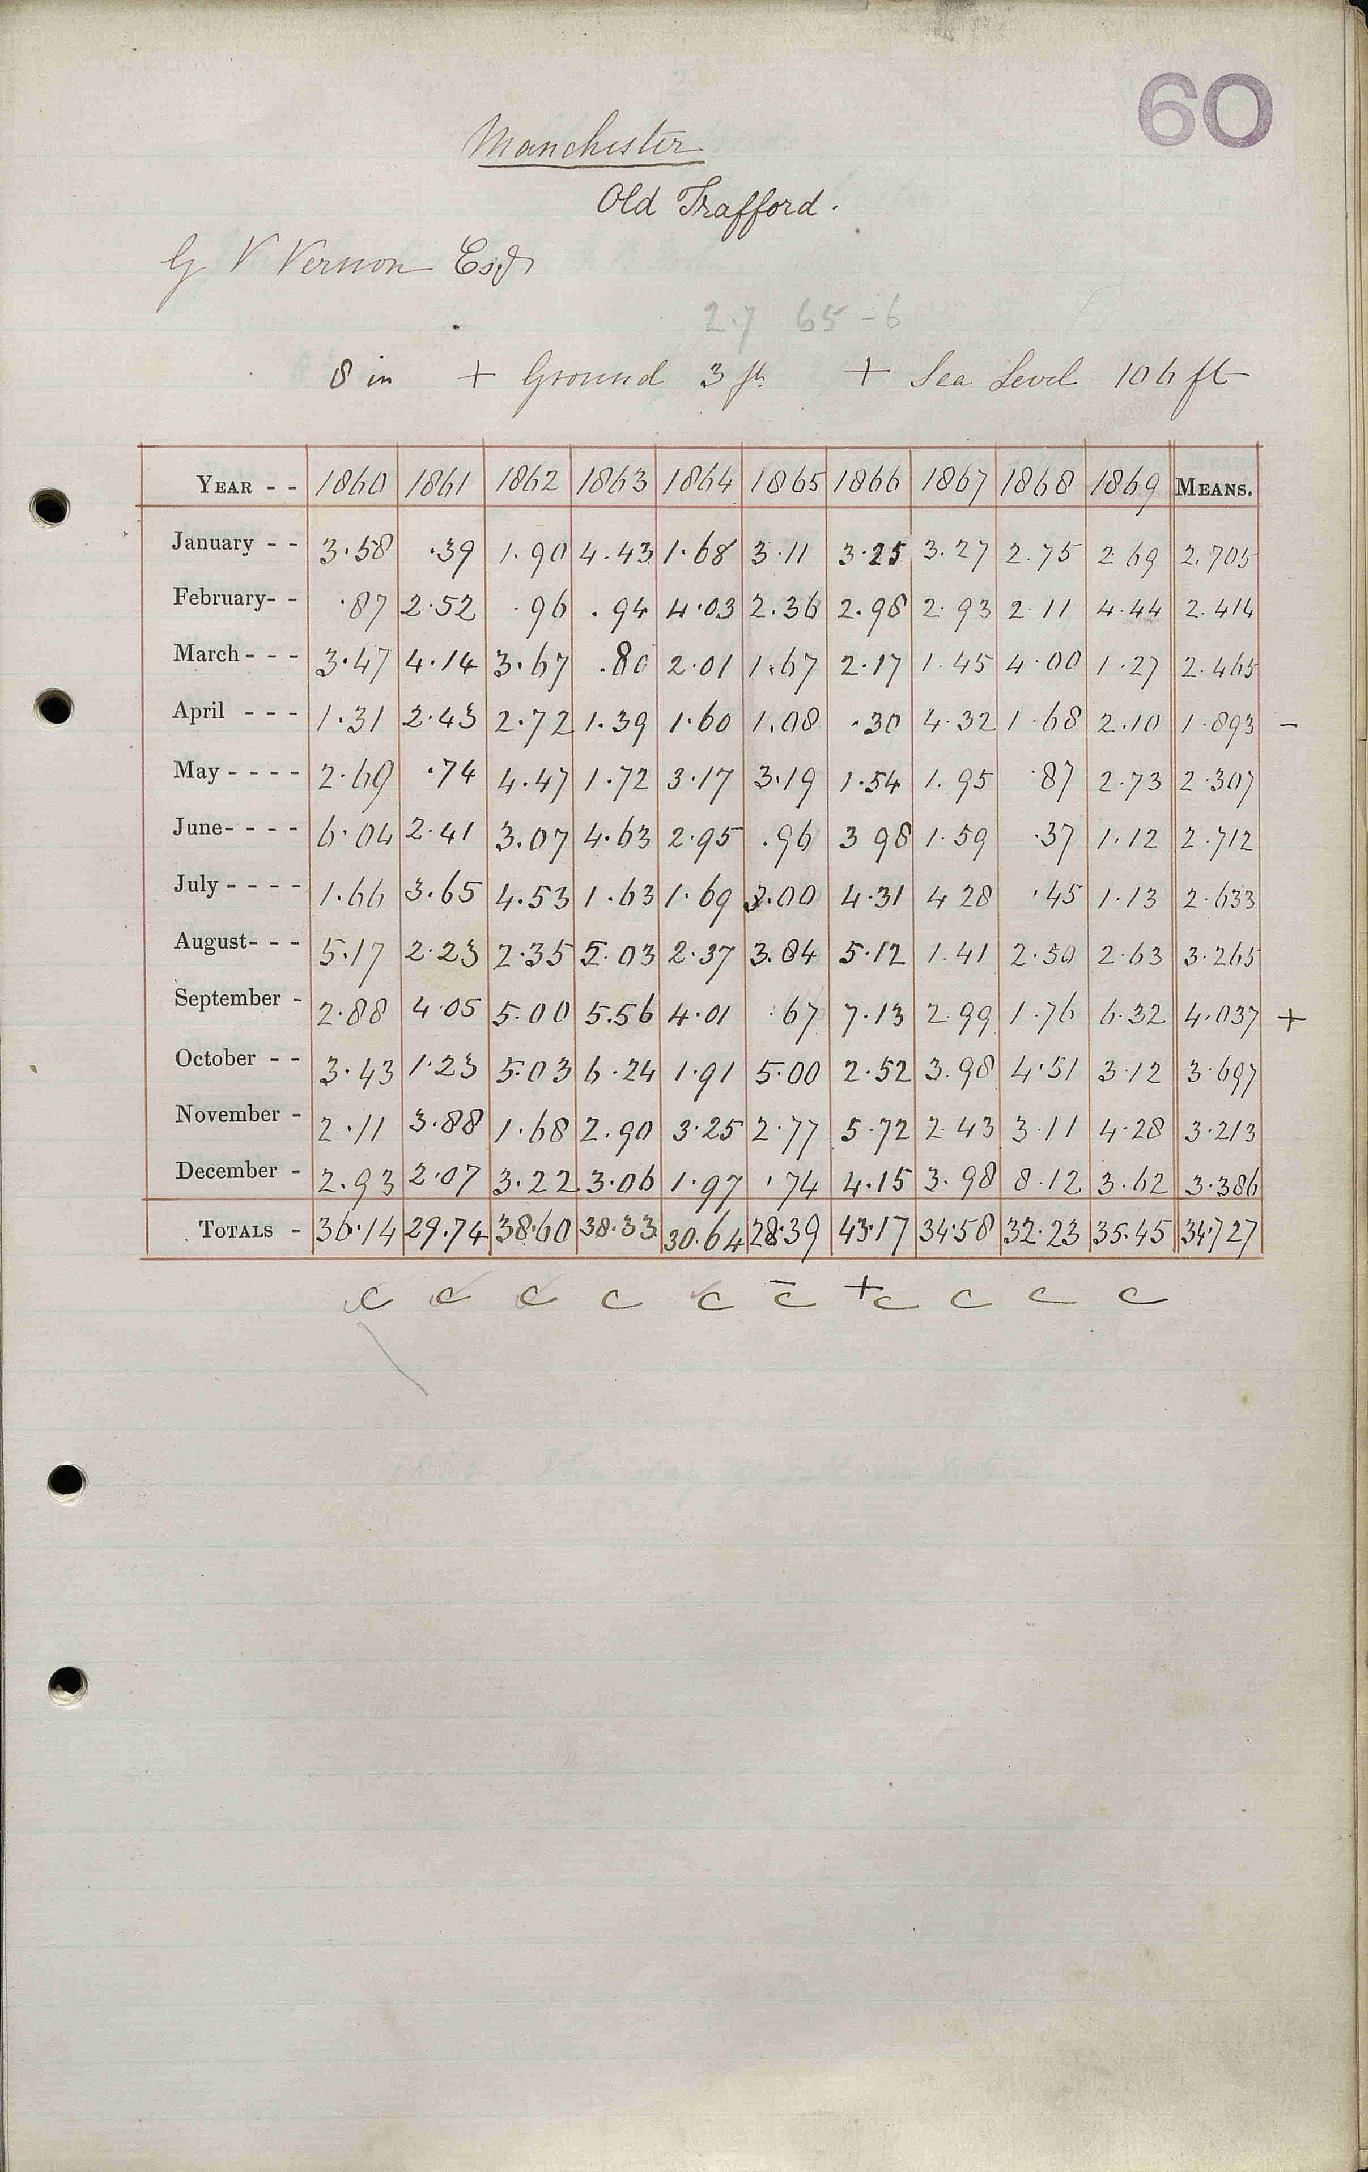 60
Manchester
Old Trafford.
G V Vernon Esqr
2.7 65-6
8 in + Ground 3 ft + Sea Level 106 ft
YEAR - - 1860 1861 1862 1863 1864 1865 1866 1867 1868 1869 MEANS.
January - - 3.58 .39 1.90 4.43 1.68 3.11 3.25 3.27 2.75 2.69 2.705
February- - .87 2.52 .96 .94 4.03 2.36 2.98 2.93 2.11 4.44 2.414
March - - - 3.47 4.14 3.67 .80 2.01 1.67 2.17 1.45 4.00 1.27 2.465
April - - - 1.31 2.43 2.72 1.39 1.60 1.08 .30 4.32 1.68 2.10 1.893 -
May - - - - 2.69 .74 4.47 1.72 3.17 3.19 1.54 1.95 .87 2.73 2.307
June- - - - 6.04 2.41 3.07 4.63 2.95 .96 3 98 1.59 .37 1.12 2.712
July - - - - 1.66 3.65 4.53 1.63 1.69 3.00 4.31 4 28 .45 1.13 2.633
August- - - 5.17 2.23 2.35 5.03 2.37 3.84 5.12 1.41 2.50 2.63 3.265
September - 2.88 4.05 5.00 5.56 4.01 .67 7.13 2.99 1.76 6.32 4.037 +
October - - 3.43 1.23 5.03 6.24 1.91 5.00 2.52 3.98 4.51 3.12 3.697
November - 2.11 3.88 1.68 2.90 3.25 2.77 5.72 2.43 3.11 4.28 3.213
December - 2.93 2.07 3.22 3.06 1.97 .74 4.15 3.98 8.12 3.62 3.386
TOTALS - 36.14 29.74 38.60 38.33 30.64 28.39 43.17 34.58 32.23 35.45 34.727
c c c c c c̅ +c c c c